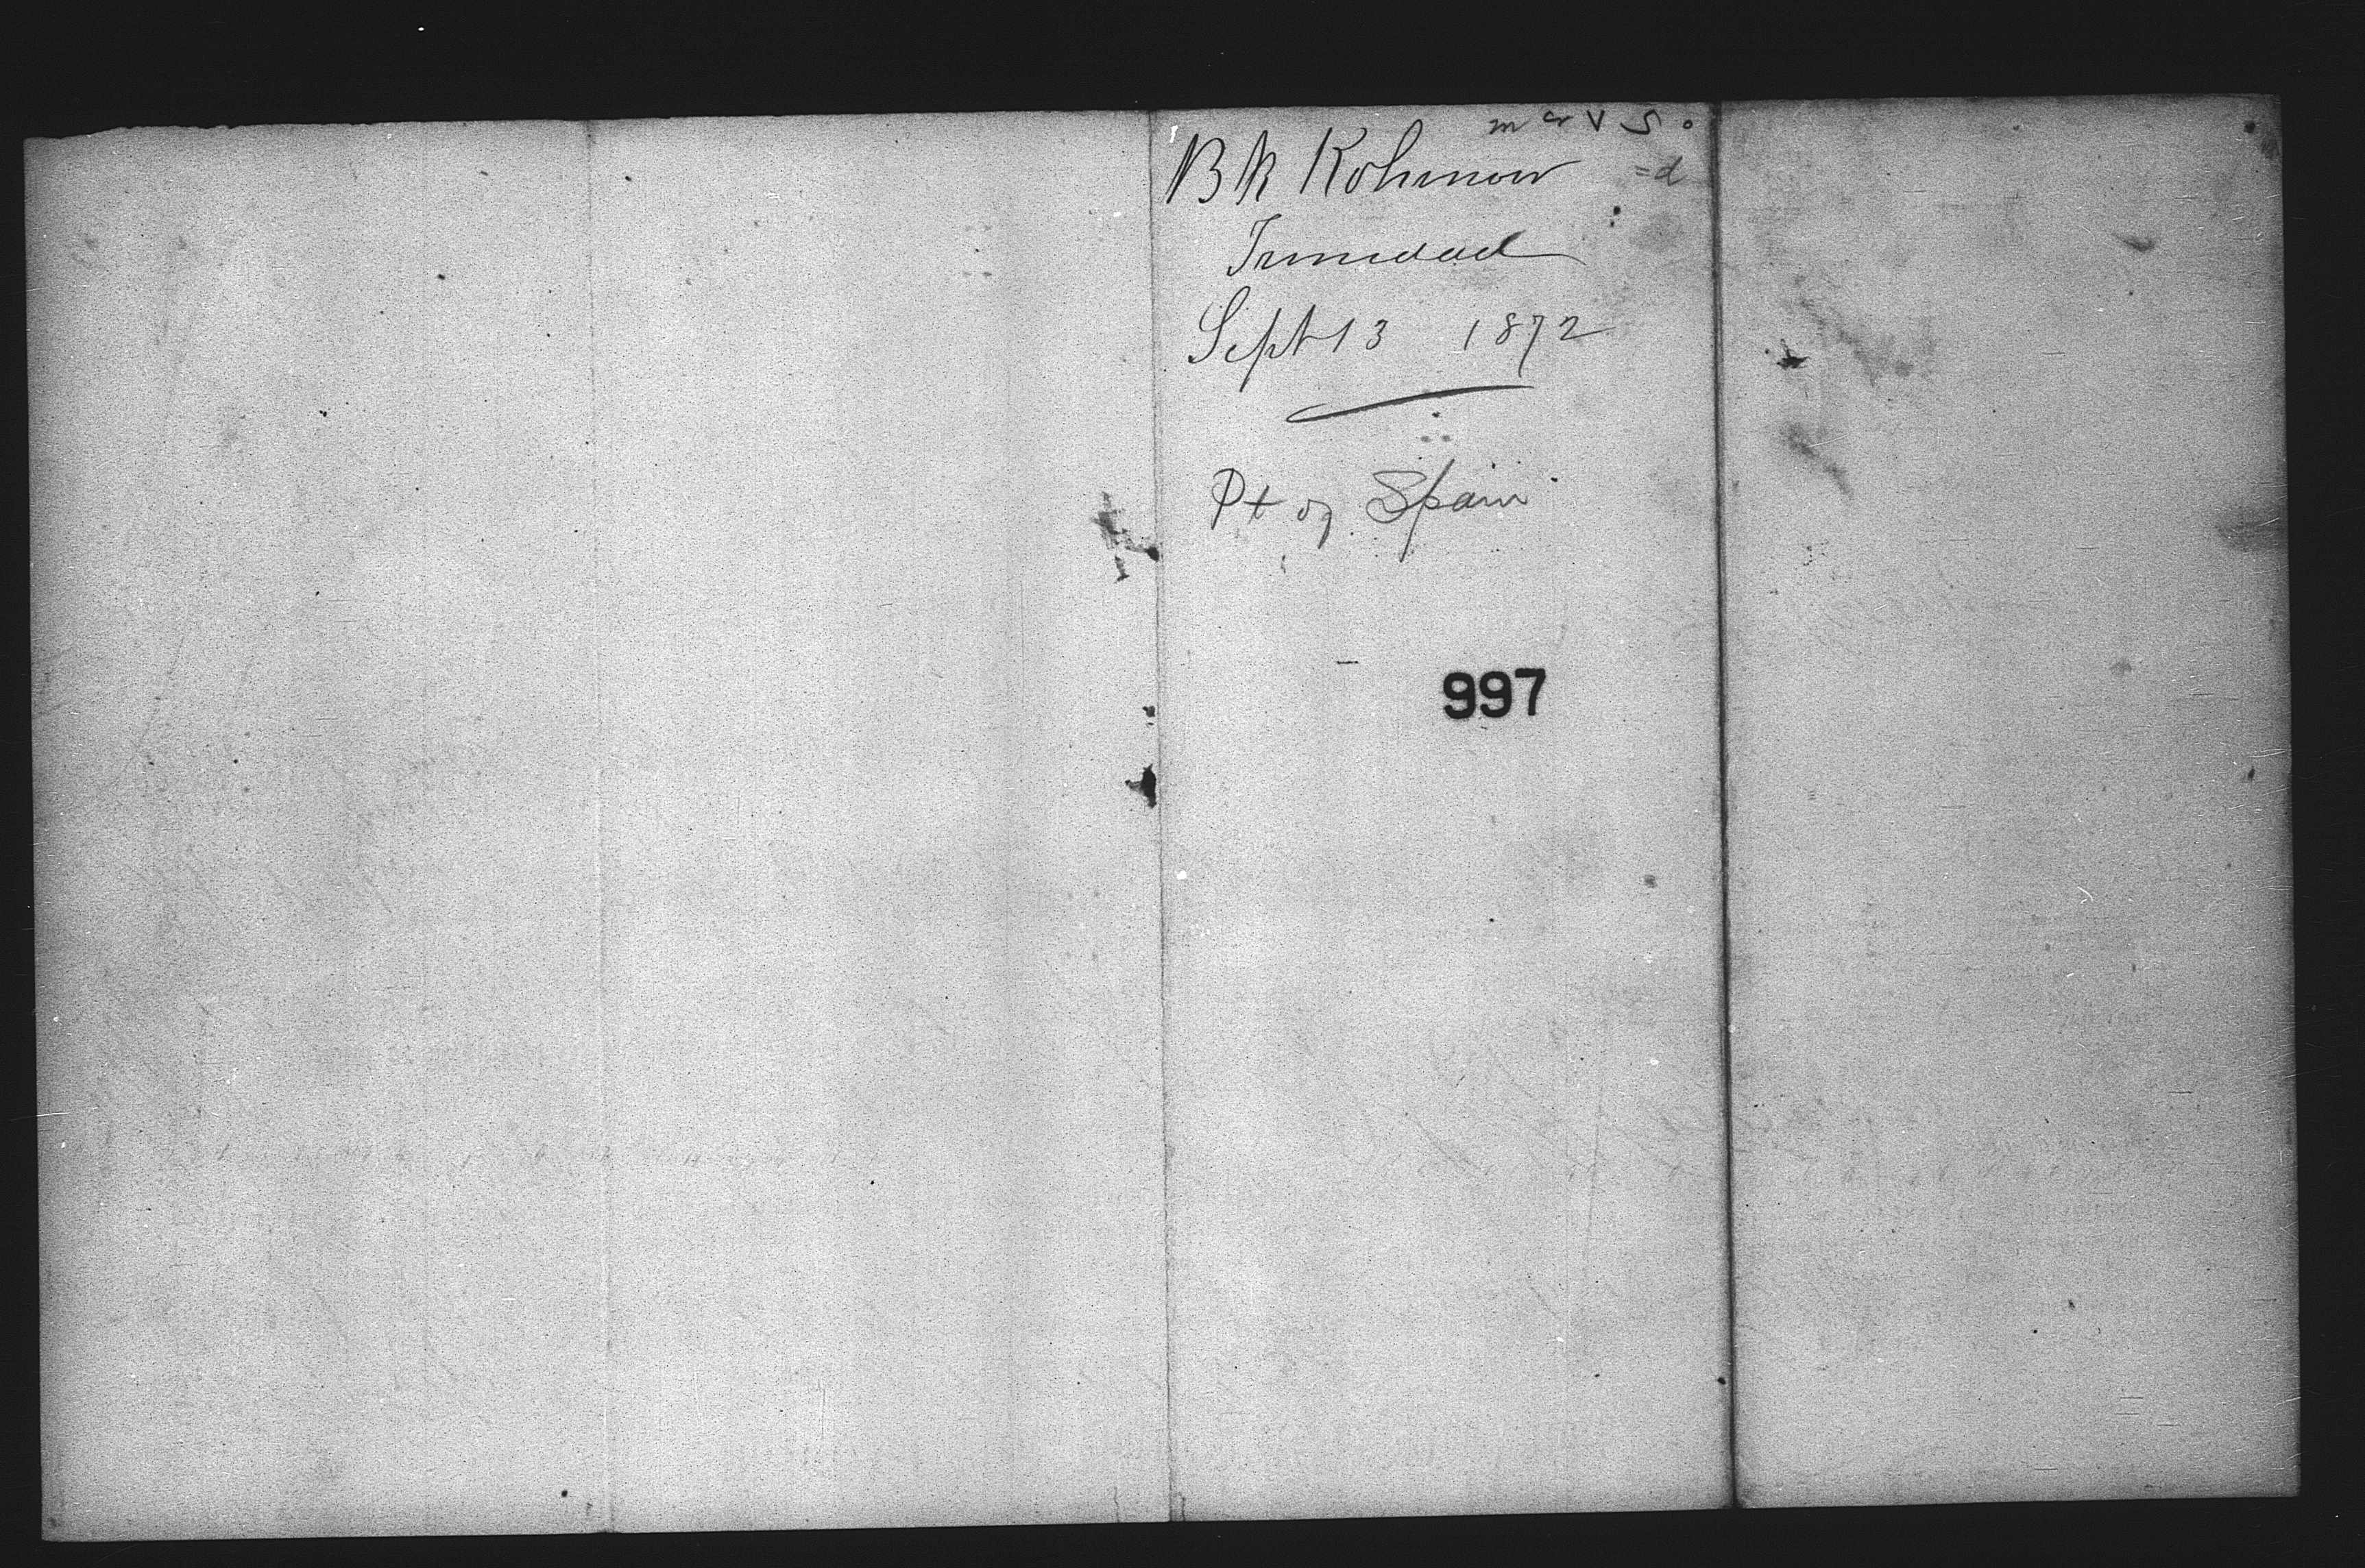 Bk Kohinoor
Trinidad
Sept 13 1872
Pt of Spain
997